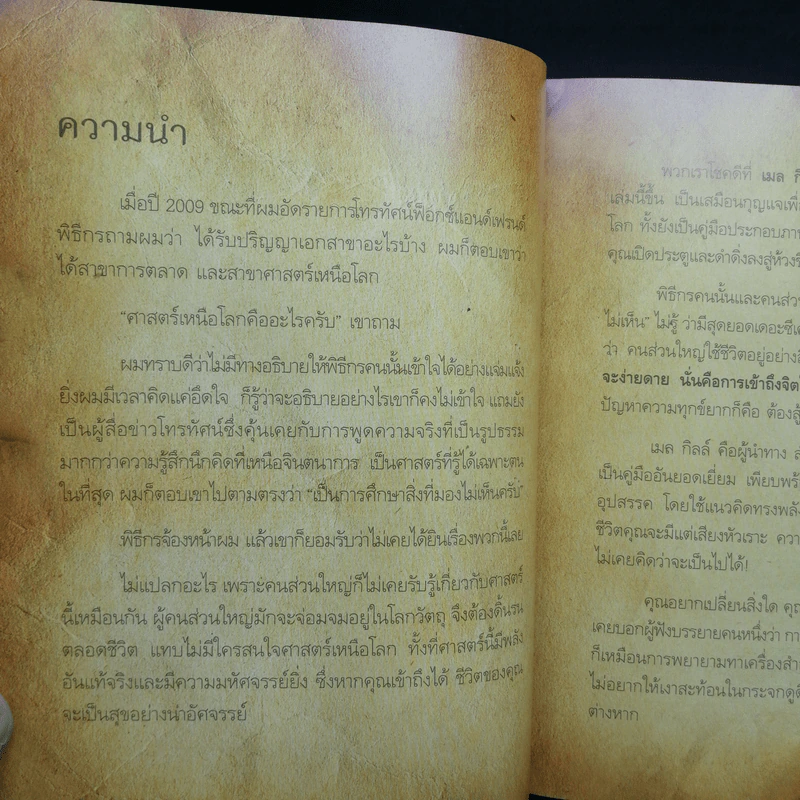 ความนำ
เมื่อปี 2009 ขณะที่ผมอัดรายการโทรทัศน์ฟ็อกซ์แอนด์เฟรนด์
พิธีกรถามผมว่า ได้รับปริญญาเอกสาขาอะไรบ้าง ผมก็ตอบเขาว่า
ได้สาขาการตลาด และสาขาศาสตร์เหนือโลก
“ศาสตร์เหนือโลกคืออะไรครับ” เขาถาม
ผมทราบดีว่าไม่มีทางอธิบายให้พิธีกรคนนั้นเข้าใจได้อย่างแจ่มแจ้ง
ยิ่งผมมีเวลาคิดแค่อึดใจ ก็รู้ว่าจะอธิบายอย่างไรเขาก็คงไม่เข้าใจ แถมยัง
เป็นผู้สื่อข่าวโทรทัศน์ซึ่งคุ้นเคยกับการพูดความจริงที่เป็นรูปธรรม
มากกว่าความรู้สึกนึกคิดที่เหนือจินตนาการ เป็นศาสตร์ที่รู้ได้เฉพาะตน
ในที่สุด ผมก็ตอบเขาไปตามตรงว่า “เป็นการศึกษาสิ่งที่มองไม่เห็นครับ”
พิธีกรจ้องหน้าผม แล้วเขาก็ยอมรับว่าไม่เคยได้ยินเรื่องพวกนี้เลย
ไม่แปลกอะไร เพราะคนส่วนใหญ่ก็ไม่เคยรับรู้เกี่ยวกับศาสตร์
นี้เหมือนกัน ผู้คนส่วนใหญ่มักจะจ่อมจมอยู่ในโลกวัตถุ จึงต้องดิ้นรน
ตลอดชีวิต แทบไม่มีใครสนใจศาสตร์เหนือโลก ทั้งที่ศาสตร์นี้มีพลัง
อันแท้จริงและมีความมหัศจรรย์ยิ่ง ซึ่งหากคุณเข้าถึงได้ ชีวิตของคุณ
จะเป็นสุขอย่างน่าอัศจรรย์
พวกเราโชคดีที่ เมล
เล่มนี้ขึ้น เป็นเสมือนกุญแจเพื่
โลก ทั้งยังเป็นคู่มือประกอบภา
คุณเปิดประตูและดำดิ่งลงสู่ห้วง
พิธีกรคนนั้นและคนส่ว
ไม่เห็น” ไม่รู้ ว่ามีสุดยอดเดอะซี
ว่า คนส่วนใหญ่ใช้ชีวิตอยู่อย่าง
จะง่ายดาย นั่นคือการเข้าถึงจิต
ปัญหาความทุกข์ยากก็คือ ต้องสู้
เมล กิลล์ คือผู้นำทาง
เป็นคู่มืออันยอดเยี่ยม เพียบพร้
อุปสรรค โดยใช้แนวคิดทรงพลัง
ชีวิตคุณจะมีแต่เสียงหัวเราะ ควา
ไม่เคยคิดว่าจะเป็นไปได้!
คุณอยากเปลี่ยนสิ่งใด คุณ
เคยบอกผู้ฟังบรรยายคนหนึ่งว่า กา
ก็เหมือนการพยายามทาเครื่องสำ
ไม่อยากให้เงาสะท้อนในกระจกดูดี
ต่างหาก